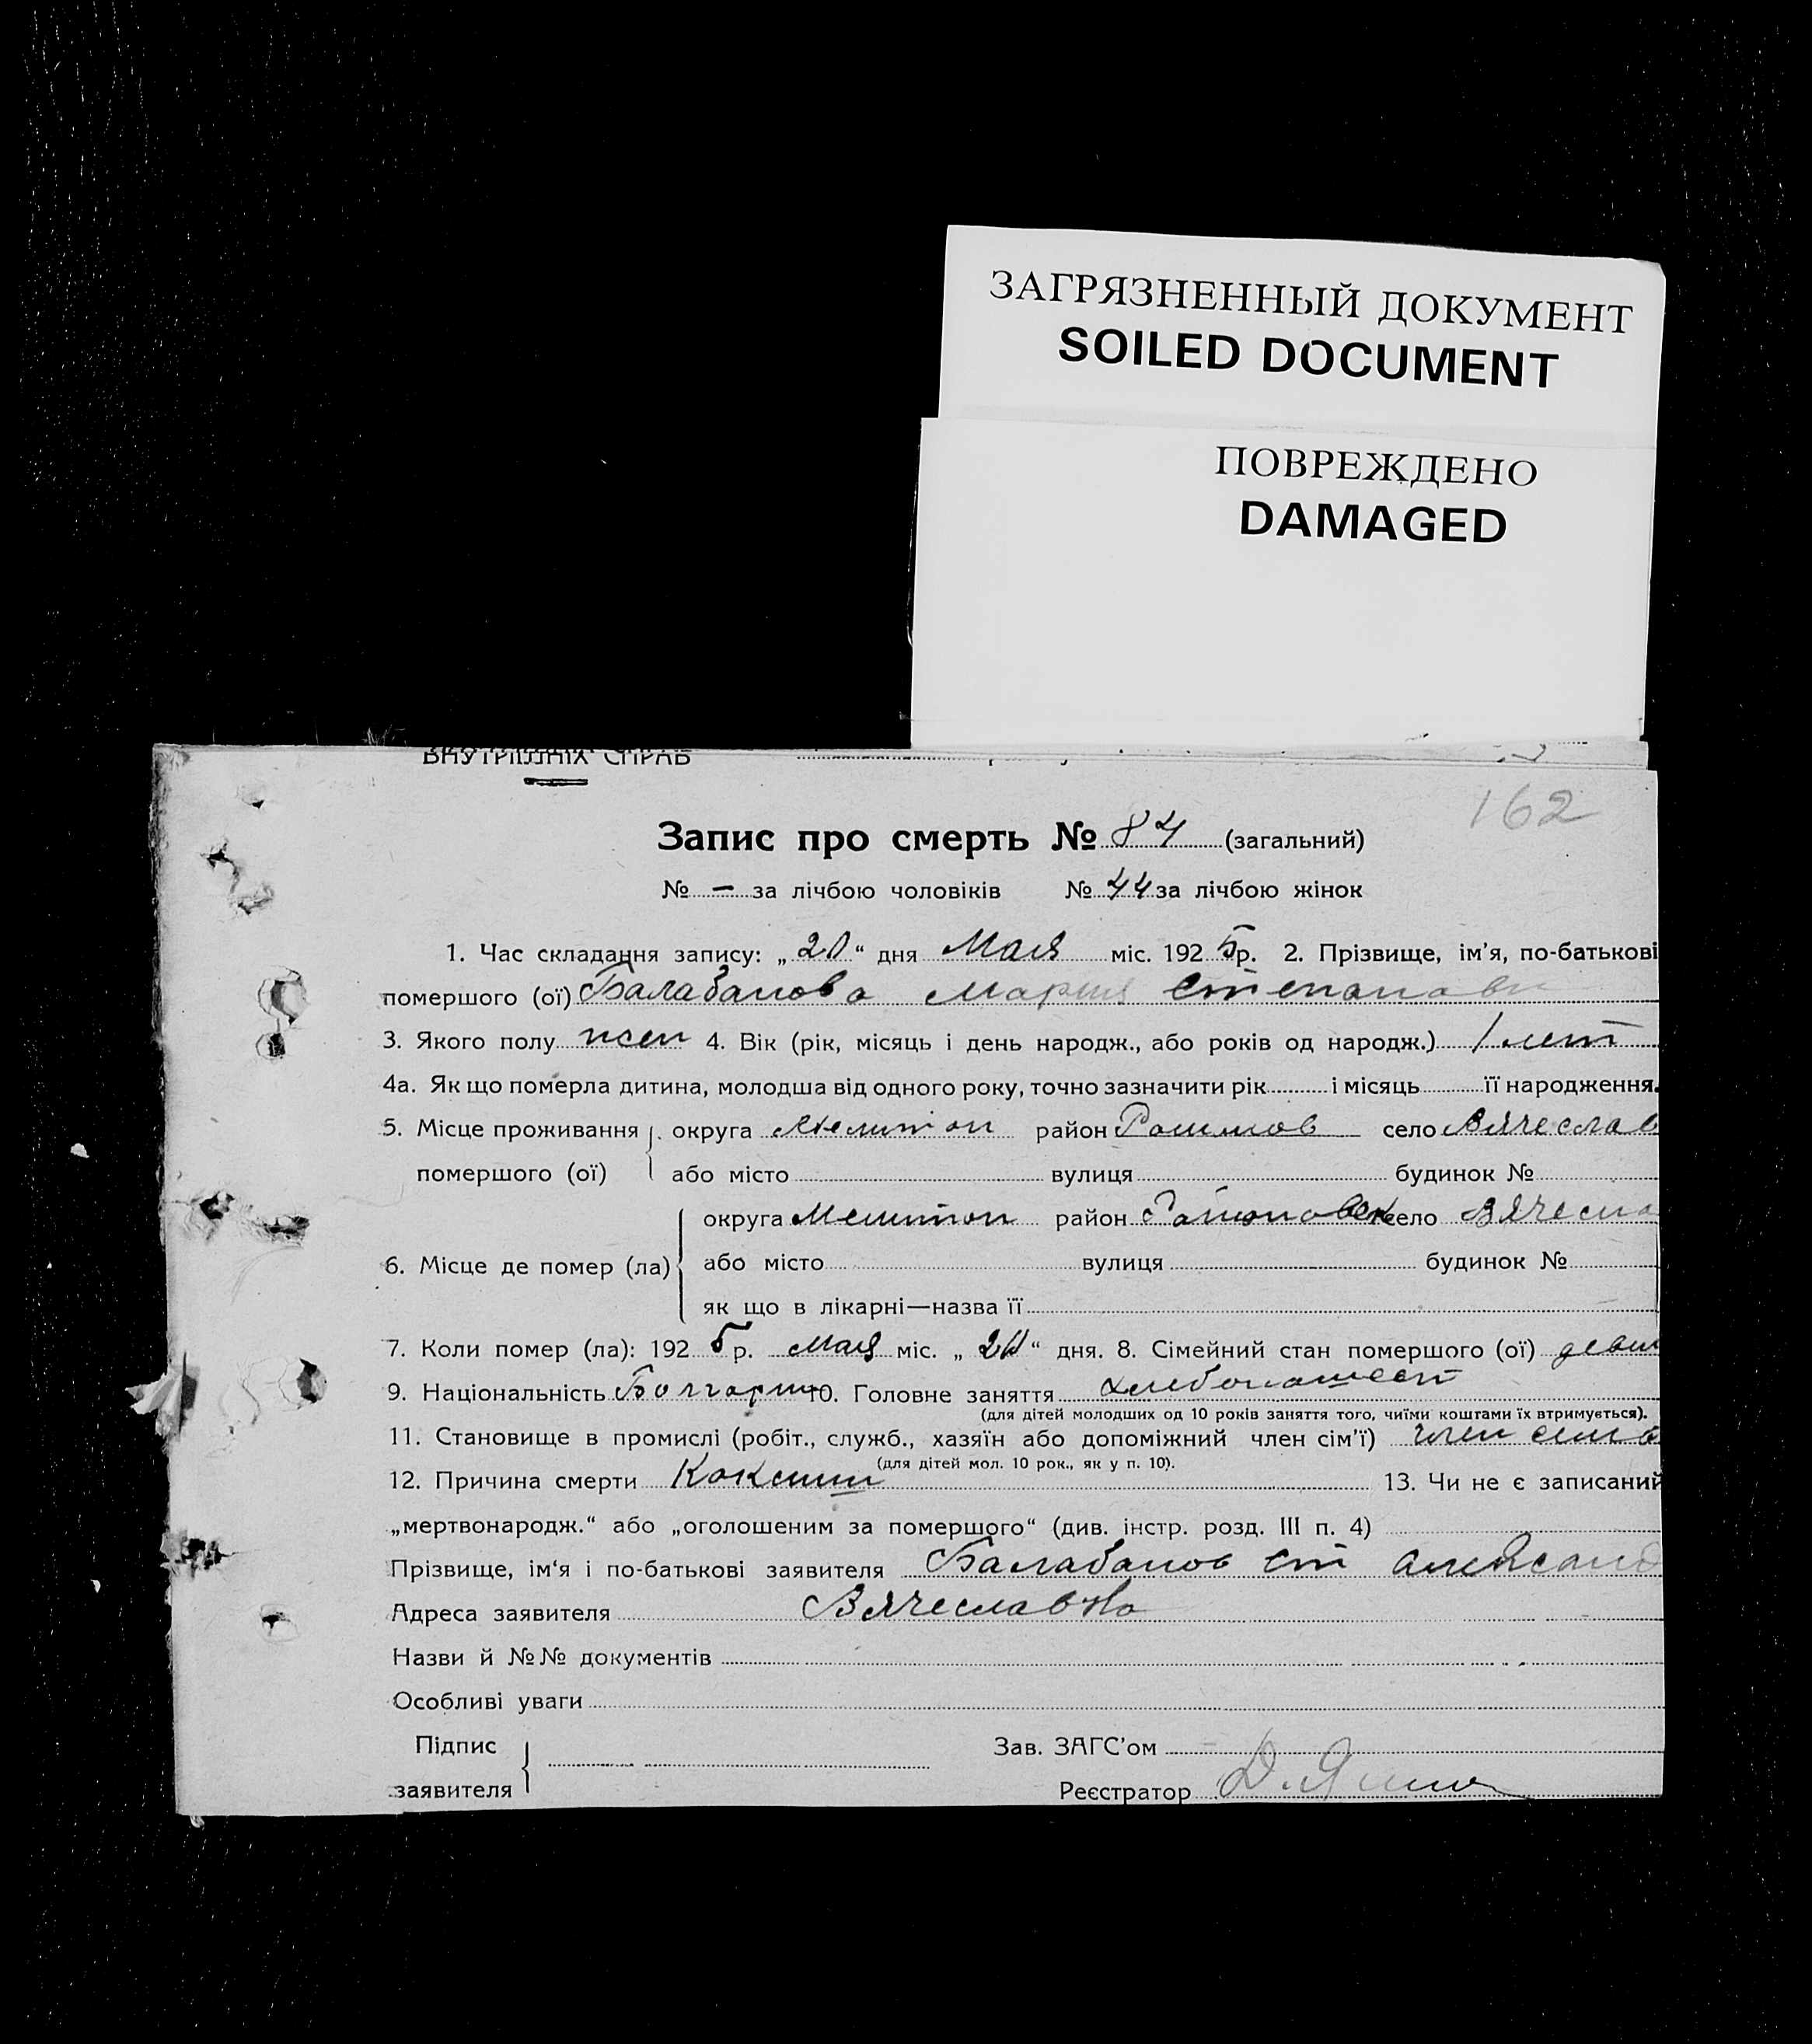 ЗАГРЯЗНЕННЫЙ ДОКУМЕНТ
SOILED DOCUMENT
ПОВРЕЖДЕНО
DAMAGED
ВНУТРІШНІХ СПРАВ
162
Запис про смерть № 84 (загальний)
№ – за лічбою чоловіків № 44 за лічбою жінок
1. Час складання запису: „20“ дня Мая міс. 1925р. 2. Прізвище, ім’я, по-батькові
помершого (ої) Балабанова Мария Степановн
3. Якого полу жен 4. Вік (рік, місяць і день народж., або років од народж.) 1 лет
4а. Як що померла дитина, молодша від одного року, точно зазначити рік і місяць її народження.
5. Місце проживання округа Мелитоп район село Вячеслав
помершого (ої) або місто вулиця будинок №
округа Мелитоп район село Вячесла
6. Місце де помер (ла) або місто вулиця будинок №
як що в лікарні—назва її
7. Коли помер (ла): 1925р. мая міс. „20“ дня. 8. Сімейний стан помершого (ої) девиц
9. Національність Болгарин 10. Головне заняття хлебопашест
(для дітей молодших од 10 років заняття того, чиїми коштами їх втримується).
11. Становище в промислі (робіт., служб., хазяїн або допоміжний член сім’ї) член семь
(для дітей мол. 10 рок., як у п. 10).
12. Причина смерти Коклюш 13. Чи не є записаний
„мертвонародж.“ або „оголошеним за помершого“ (див. інстр. розд. III п. 4)
Прізвище, ім‘я і по-батькові заявителя Балабанов Ст Александ
Адреса заявителя Вячеславка
Назви й №№ документів
Особливі уваги
Підпис Зав. ЗАГС’ом
заявителя Реєстратор